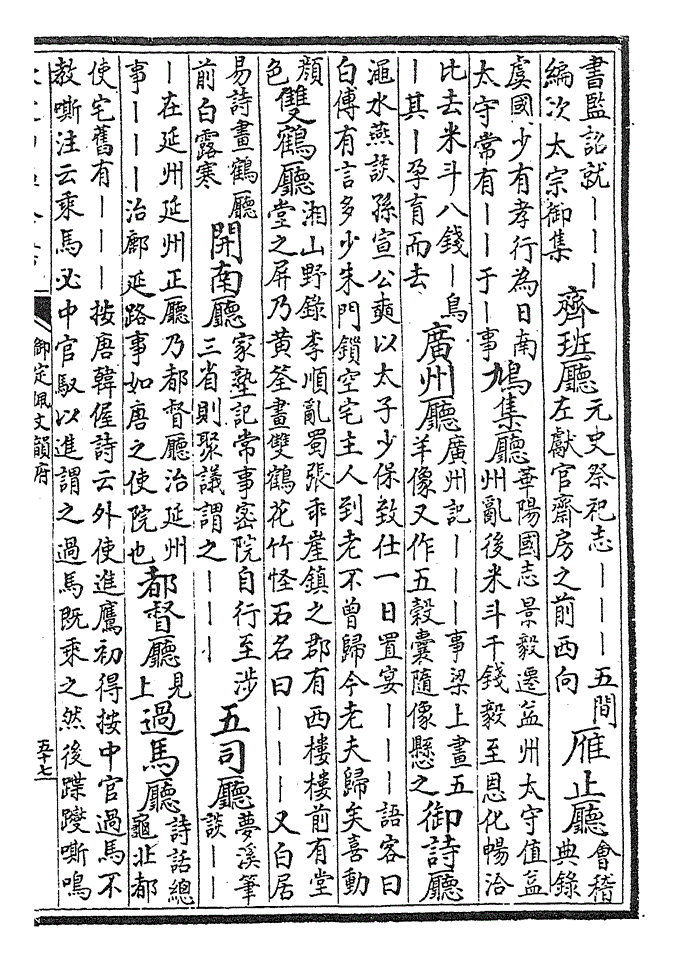 書監詔就｜｜｜
編次太宗御集
齊班廳
元史祭祀志｜｜｜五間
左獻官齋房之前西向
雁止廳
會稽
典錄
虞國少有孝行為日南
太守常有｜｜于｜事
鳩集廳
華陽國志景毅遷益州太守值益
州亂後米斗千錢毅至恩化暢洽
比去米斗八錢｜鳥
｜其｜孕育而去
廣州廳
廣州記｜｜｜事梁上畫五
羊像又作五穀囊隨像懸之
御詩廳
澠水燕談孫宣公奭以太子少保致仕一日置宴｜｜｜語客曰
白傅有言多少朱門鎖空宅主人到老不曾歸今老夫歸矣喜動
顏
色
雙鶴廳
湘山野錄李順亂蜀張乖崖鎮之郡有西樓樓前有堂
堂之屏乃黃筌畫雙鶴花竹怪石名曰｜｜｜又白居
易詩畫鶴廳
前白露寒
開南廳
家塾記常事密院自行至涉
三省則聚議謂之｜｜｜
五司廳
夢溪筆
談｜｜
｜在延州延州正廳乃都督廳治延州
事｜｜｜治鄜延路事如唐之使院也
都督廳
見
上
過馬廳
詩話總
龜北都
使宅舊有｜｜｜按唐韓偓詩云外使進鷹初得按中官過馬不
教嘶注云乘馬必中官馭以進謂之過馬既乘之然後蹀躞嘶鳴
御定佩文韻府
五十七